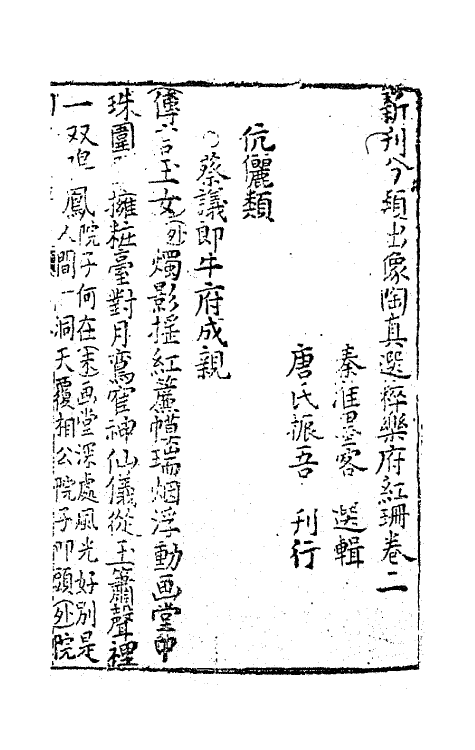 新刊分類出像陶真選粹樂府紅珊卷二
秦淮墨客 選輯
唐氏振吾 刊行
伉儷類
蔡議郎牛府成親
傳言玉女(外)燭影搖紅簾幙瑞烟浮動画堂中
珠圍 擁粧臺對月鸞 神仙儀從玉簫聲裡
一双 鳳 院子何在(末)画堂深處風光好別是
人間一洞天覆相公院子叩頭(外)院